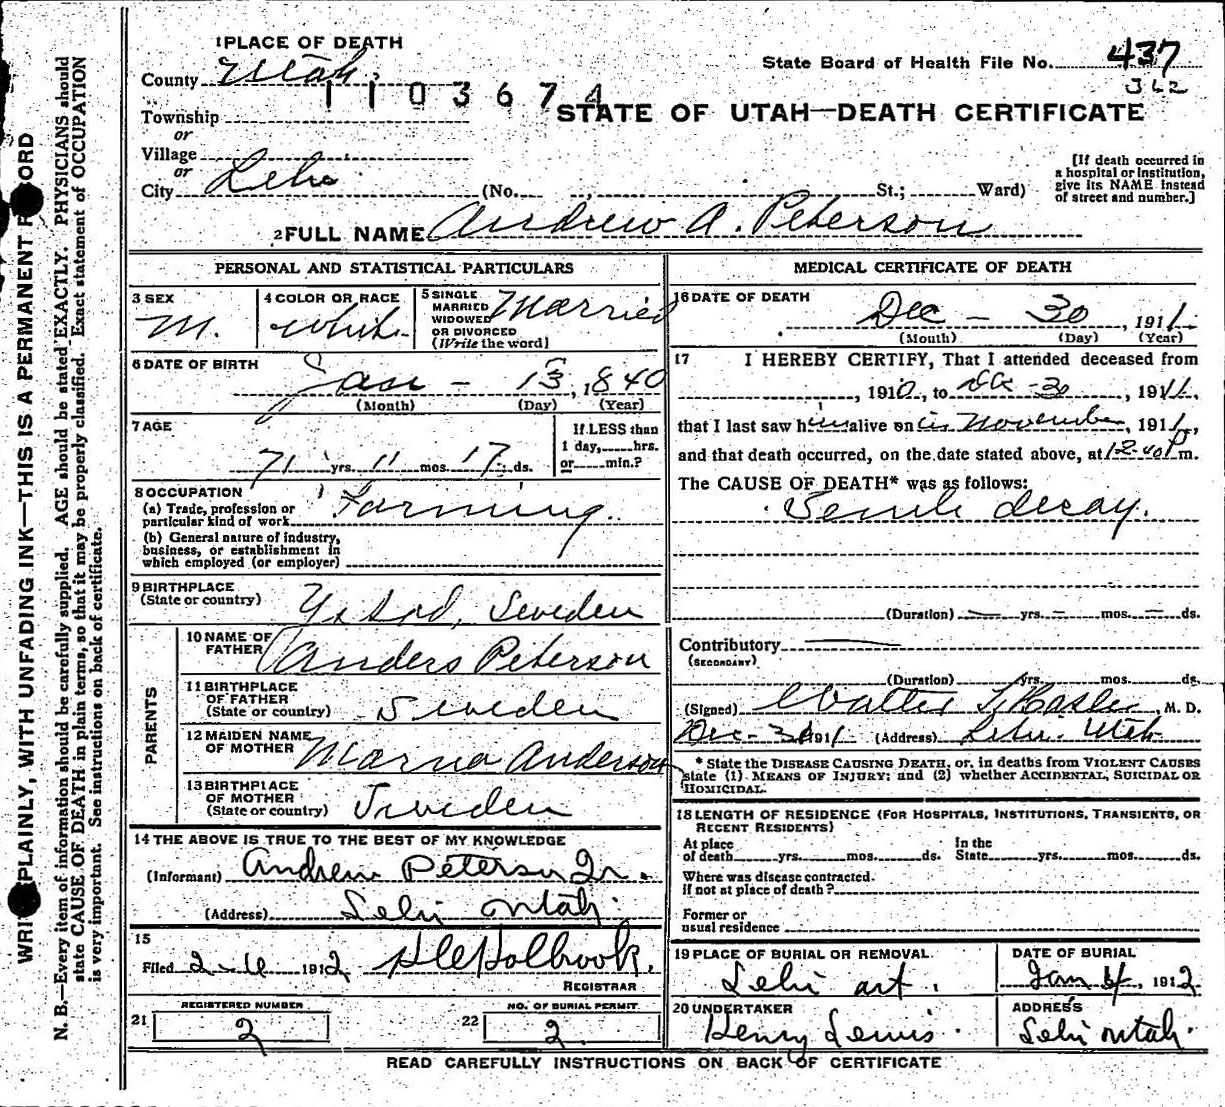 WRITE PLAINLY, WITH UNFADING INK—THIS IS A PERMANENT RECORD
N. B.—Every item of information should be carefully supplied. AGE should be stated EXACTLY. PHYSICIANS should
state CAUSE OF DEATH in plain terms, so that it may be properly classified. Exact statement of OCCUPATION
is very important. See instructions on back of certificate.
1 PLACE OF DEATH
County Utah.
State Board of Health File No. 437
362
1103674
STATE OF UTAH—DEATH CERTIFICATE
Township
or
Village
or
City Lehi (No. , St.; Ward)
[If death occurred in
a hospital or institution,
give its NAME instead
of street and number.]
2 FULL NAME Andrew A. Peterson
PERSONAL AND STATISTICAL PARTICULARS
3 SEX
M.
4 COLOR OR RACE
White
5 SINGLE
MARRIED
WIDOWED
OR DIVORCED
(Write the word)
Married
6 DATE OF BIRTH
Jan - 13, 1840
(Month) (Day) (Year)
7 AGE
71 yrs. 11 mos. 17 ds.
If LESS than
1 day, hrs.
or min.?
8 OCCUPATION
(a) Trade, profession or
particular kind of work Farming.
(b) General nature of industry,
business, or establishment in
which employed (or employer)
9 BIRTHPLACE
(State or country) Ystad, Sweden
PARENTS
10 NAME OF
FATHER Anders Peterson
11 BIRTHPLACE
OF FATHER
(State or country) Sweden
12 MAIDEN NAME
OF MOTHER Marna Anderson
13 BIRTHPLACE
OF MOTHER
(State or country) Sweden
14 THE ABOVE IS TRUE TO THE BEST OF MY KNOWLEDGE
(Informant) Andrew Peterson Jr.
(Address) Lehi Utah.
15
Filed 2-6 1912 Holbrook.
REGISTRAR
REGISTERED NUMBER
21 2
NO. OF BURIAL PERMIT
22 2.
MEDICAL CERTIFICATE OF DEATH
16 DATE OF DEATH
Dec - 30, 1911.
(Month) (Day) (Year)
17 I HEREBY CERTIFY, That I attended deceased from
, 1910, to Dec - 30, 1911,
that I last saw him alive on in November, 1911,
and that death occurred, on the date stated above, at 12-40 P m.
The CAUSE OF DEATH* was as follows:
Senile decay.
(Duration) yrs. mos. ds.
Contributory
(SECONDARY)
(Duration) yrs. mos. ds.
(Signed) Walter T. Hasler, M. D.
Dec- 1911 (Address) Lehi. Utah
* State the DISEASE CAUSING DEATH, or, in deaths from VIOLENT CAUSES
state (1) MEANS OF INJURY; and (2) whether ACCIDENTAL, SUICIDAL OR
HOMICIDAL.
18 LENGTH OF RESIDENCE (FOR HOSPITALS, INSTITUTIONS, TRANSIENTS, OR
RECENT RESIDENTS)
At place
of death yrs. mos. ds.
In the
State yrs. mos. ds.
Where was disease contracted.
if not at place of death?
Former or
usual residence
19 PLACE OF BURIAL OR REMOVAL.
Lehi
DATE OF BURIAL
Jan , 1912
20 UNDERTAKER
Henry Lewis.
ADDRESS
Lehi Utah.
READ CAREFULLY INSTRUCTIONS ON BACK OF CERTIFICATE